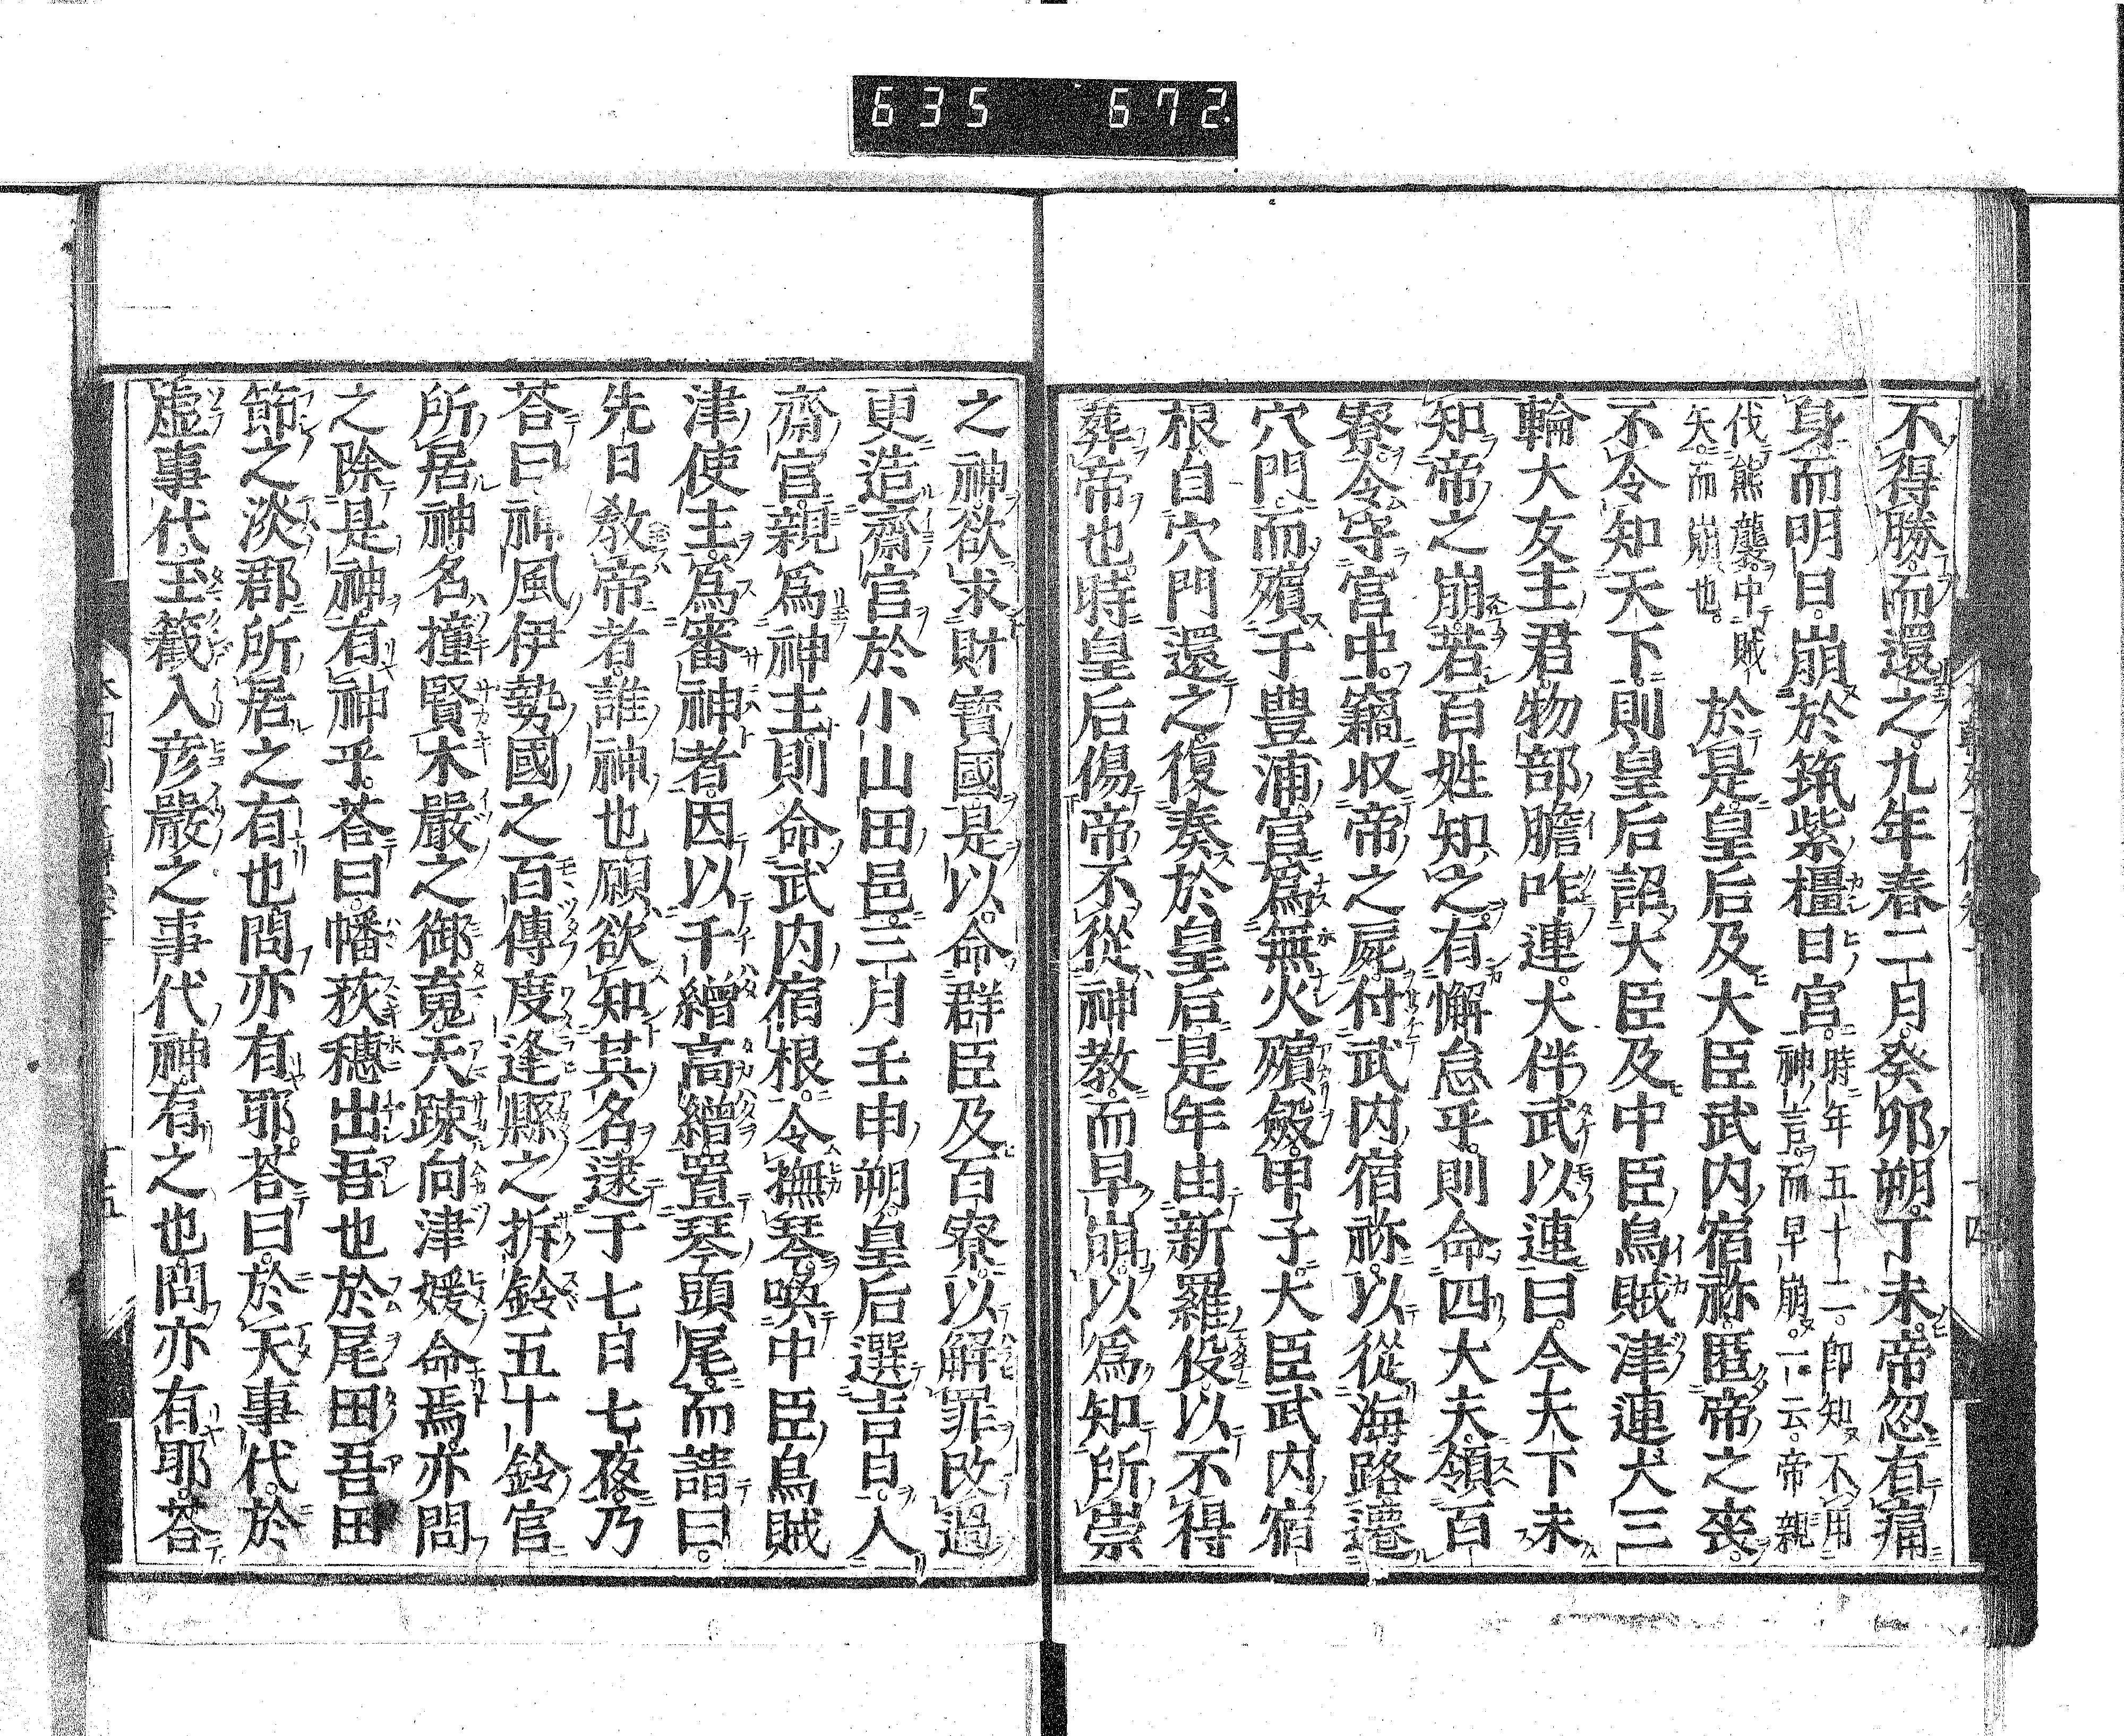 635 672
不得勝而還之。九年春二月癸卯朔丁未。帝忽有痛
身而明日。崩於筑紫橿日宮。時年五十二。即知不用
神言。而早崩。一云。帝親
伐熊襲。中賊
矢。而崩也。
於是皇后及大臣武内宿祢。匿帝之喪。
不令知天下。則皇后詔大臣及中臣烏賊津連。大三
輪大友主君。物部膽咋連。大伴武以連曰。今天下未
知帝之崩。若百姓知之。有懈怠乎。則命四大夫。領百
寮。令守宮中。竊収帝之屍。付武内宿祢。以從海路遷
穴門。而殯于豊浦宮。爲無火殯斂。甲子。大臣武内宿
根自穴門還之。復奏於皇后。是年由新羅役。以不得
葬帝也。時皇后傷帝不從神教。而早崩。以爲知所崇
之神。欲求財寶國。是以。命群臣及百寮。以解罪改過
更造齋宮於小山田邑。三月壬申朔。皇后選吉日。入
齋宮。親爲神主。則命武内宿根。令撫琴。喚中臣烏賊
津使主。爲審神者。因以千繒高繒。置琴頭尾。而請曰。
先日教帝者。誰神也。願欲知其名。逮于七日七夜。乃
荅曰。神風伊勢國之百傳度逢縣之拆鈴五十鈴宮
所居神。名撞賢木嚴之御䰟天踈向津媛命焉。亦問
之除是神有神乎。荅曰。幡荻穗出吾也於尾田吾田
節之淡郡所居之有也。問亦有耶。荅曰。於天事代於
虚事代。玉籖入彦嚴之事代神有之也。問亦有耶。荅
十四
十五